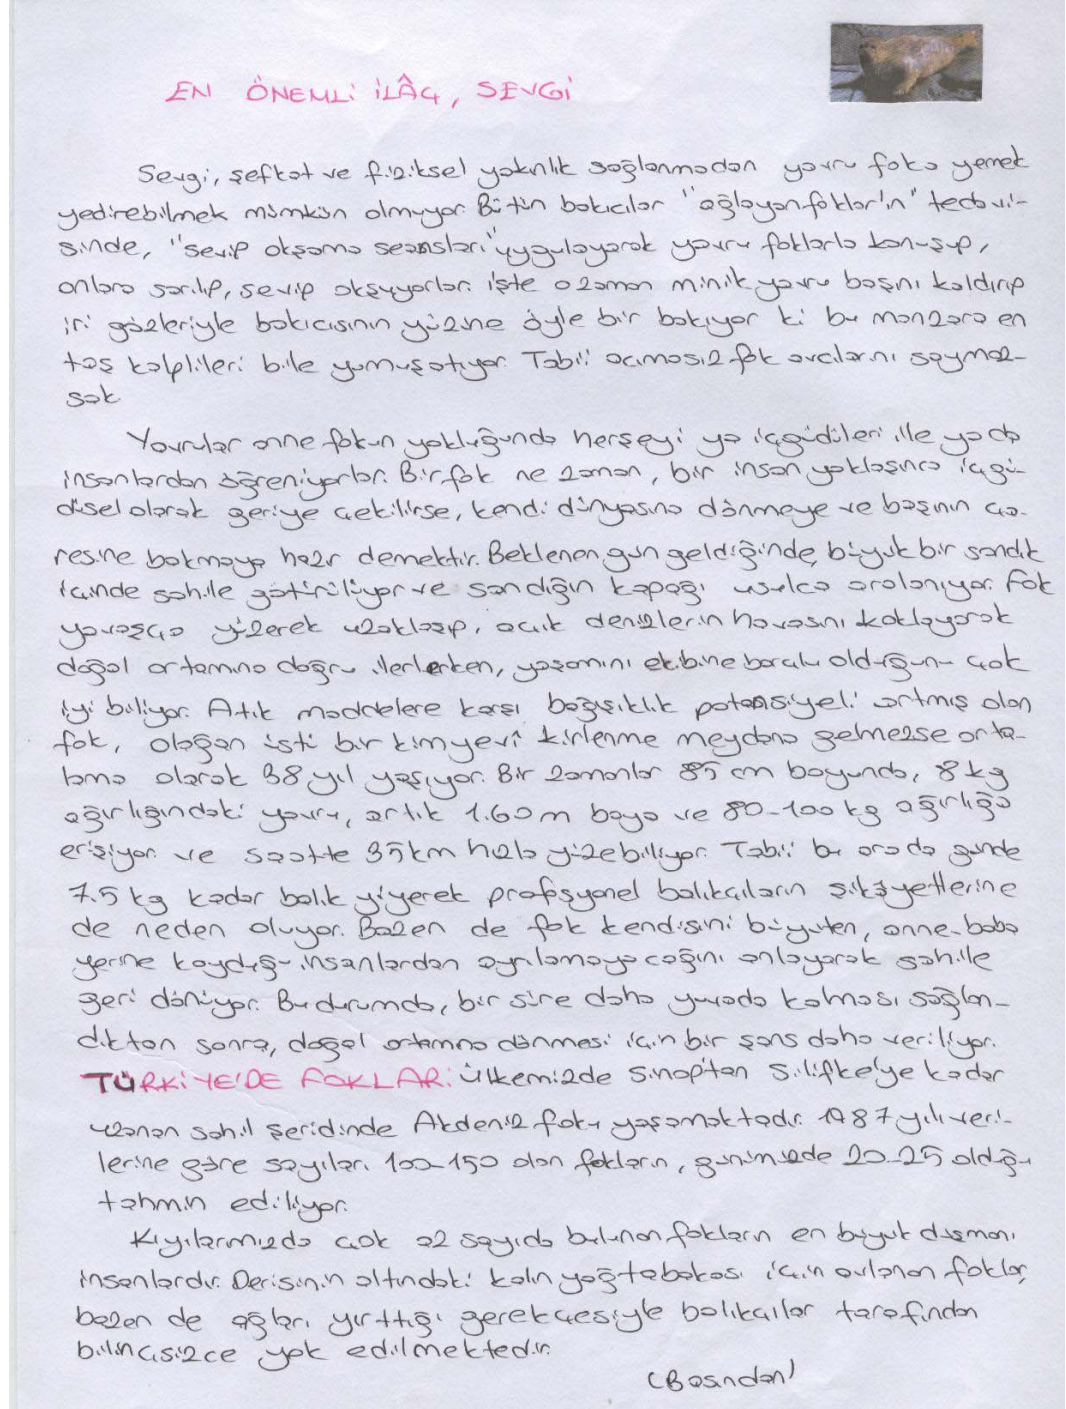 EN ÖNEMLİ İLÂÇ, SEVGİ
Sevgi, şefkat ve fiziksel yakınlık sağlanmadan yavru foka yemek
yedirebilmek mümkün olmuyor. Bütün bakıcılar "ağlayan foklar'ın" tedavi-
sinde, "sevip okşama seansları" uygulayarak yavru foklarla konuşup,
onlara sarılıp, sevip okşuyorlar. işte o zaman minik yavru başını kaldırıp
iri gözleriyle bakıcısının yüzüne öyle bir bakıyor ki bu manzara en
taş kalplileri bile yumuşatıyor. Tabii acımasız fok avcılarını saymaz-
sak
Yavrular anne fokun yokluğunda herşeyi ya içgüdüleri ile ya da
insanlardan öğreniyorlar. Bir fok ne zaman, bir insan yaklaşınca içgü-
düsel olarak geriye çekilirse, kendi dünyasına dönmeye ve başının ça-
resine bakmaya hazır demektir. Beklenen gün geldiğinde, büyük bir sandık
içinde sahile götürülüyor ve sandığın kapağı usulca aralanıyor. Fok
yavaşça yüzerek uzaklaşıp, açık denizlerin havasını koklayarak
doğal ortamına doğru ilerlerken, yaşamını ekibine borçlu olduğunu çok
iyi biliyor. Atık maddelere karşı bağışıklık potansiyeli artmış olan
fok, olağan üstü bir kimyevî kirlenme meydana gelmezse orta-
lama olarak 38 yıl yaşıyor. Bir zamanlar 85 cm boyunda, 8 kg
ağırlığındaki yavru, artık 1.60 m boya ve 80-100 kg ağırlığa
erişiyor ve saatte 35 km hızla yüzebiliyor. Tabii bu arada günde
7.5 kg kadar balık yiyerek profsyonel balıkçıların şikâyetlerine
de neden oluyor. Bazen de fok kendisini büyüten, anne-baba
yerine koyduğu insanlardan ayrılamayacağını anlayarak sahile
geri dönüyor. Bu durumda, bir süre daha yuvada kalması sağlan-
dıktan sonra, doğal ortamına dönmesi için bir şans daha veriliyor.
TÜRKİYE'DE FOKLAR: Ülkemizde Sinop'tan Silifke'ye kadar
uzanan sahil şeridinde Akdeniz foku yaşamaktadır. 1987 yılı veri-
lerine göre sayıları 100-150 olan fokların, günümüzde 20-25 olduğu
tahmin ediliyor.
Kıyılarımızda çok az sayıda bulunan fokların en büyük düşmanı
insanlardır. Derisinin altındaki kalın yağ tabakası için avlanan foklar,
bazen de ağları yırttığı gerekçesiyle balıkçılar tarafından
bilinçsizce yok edilmektedir.
(Basından)